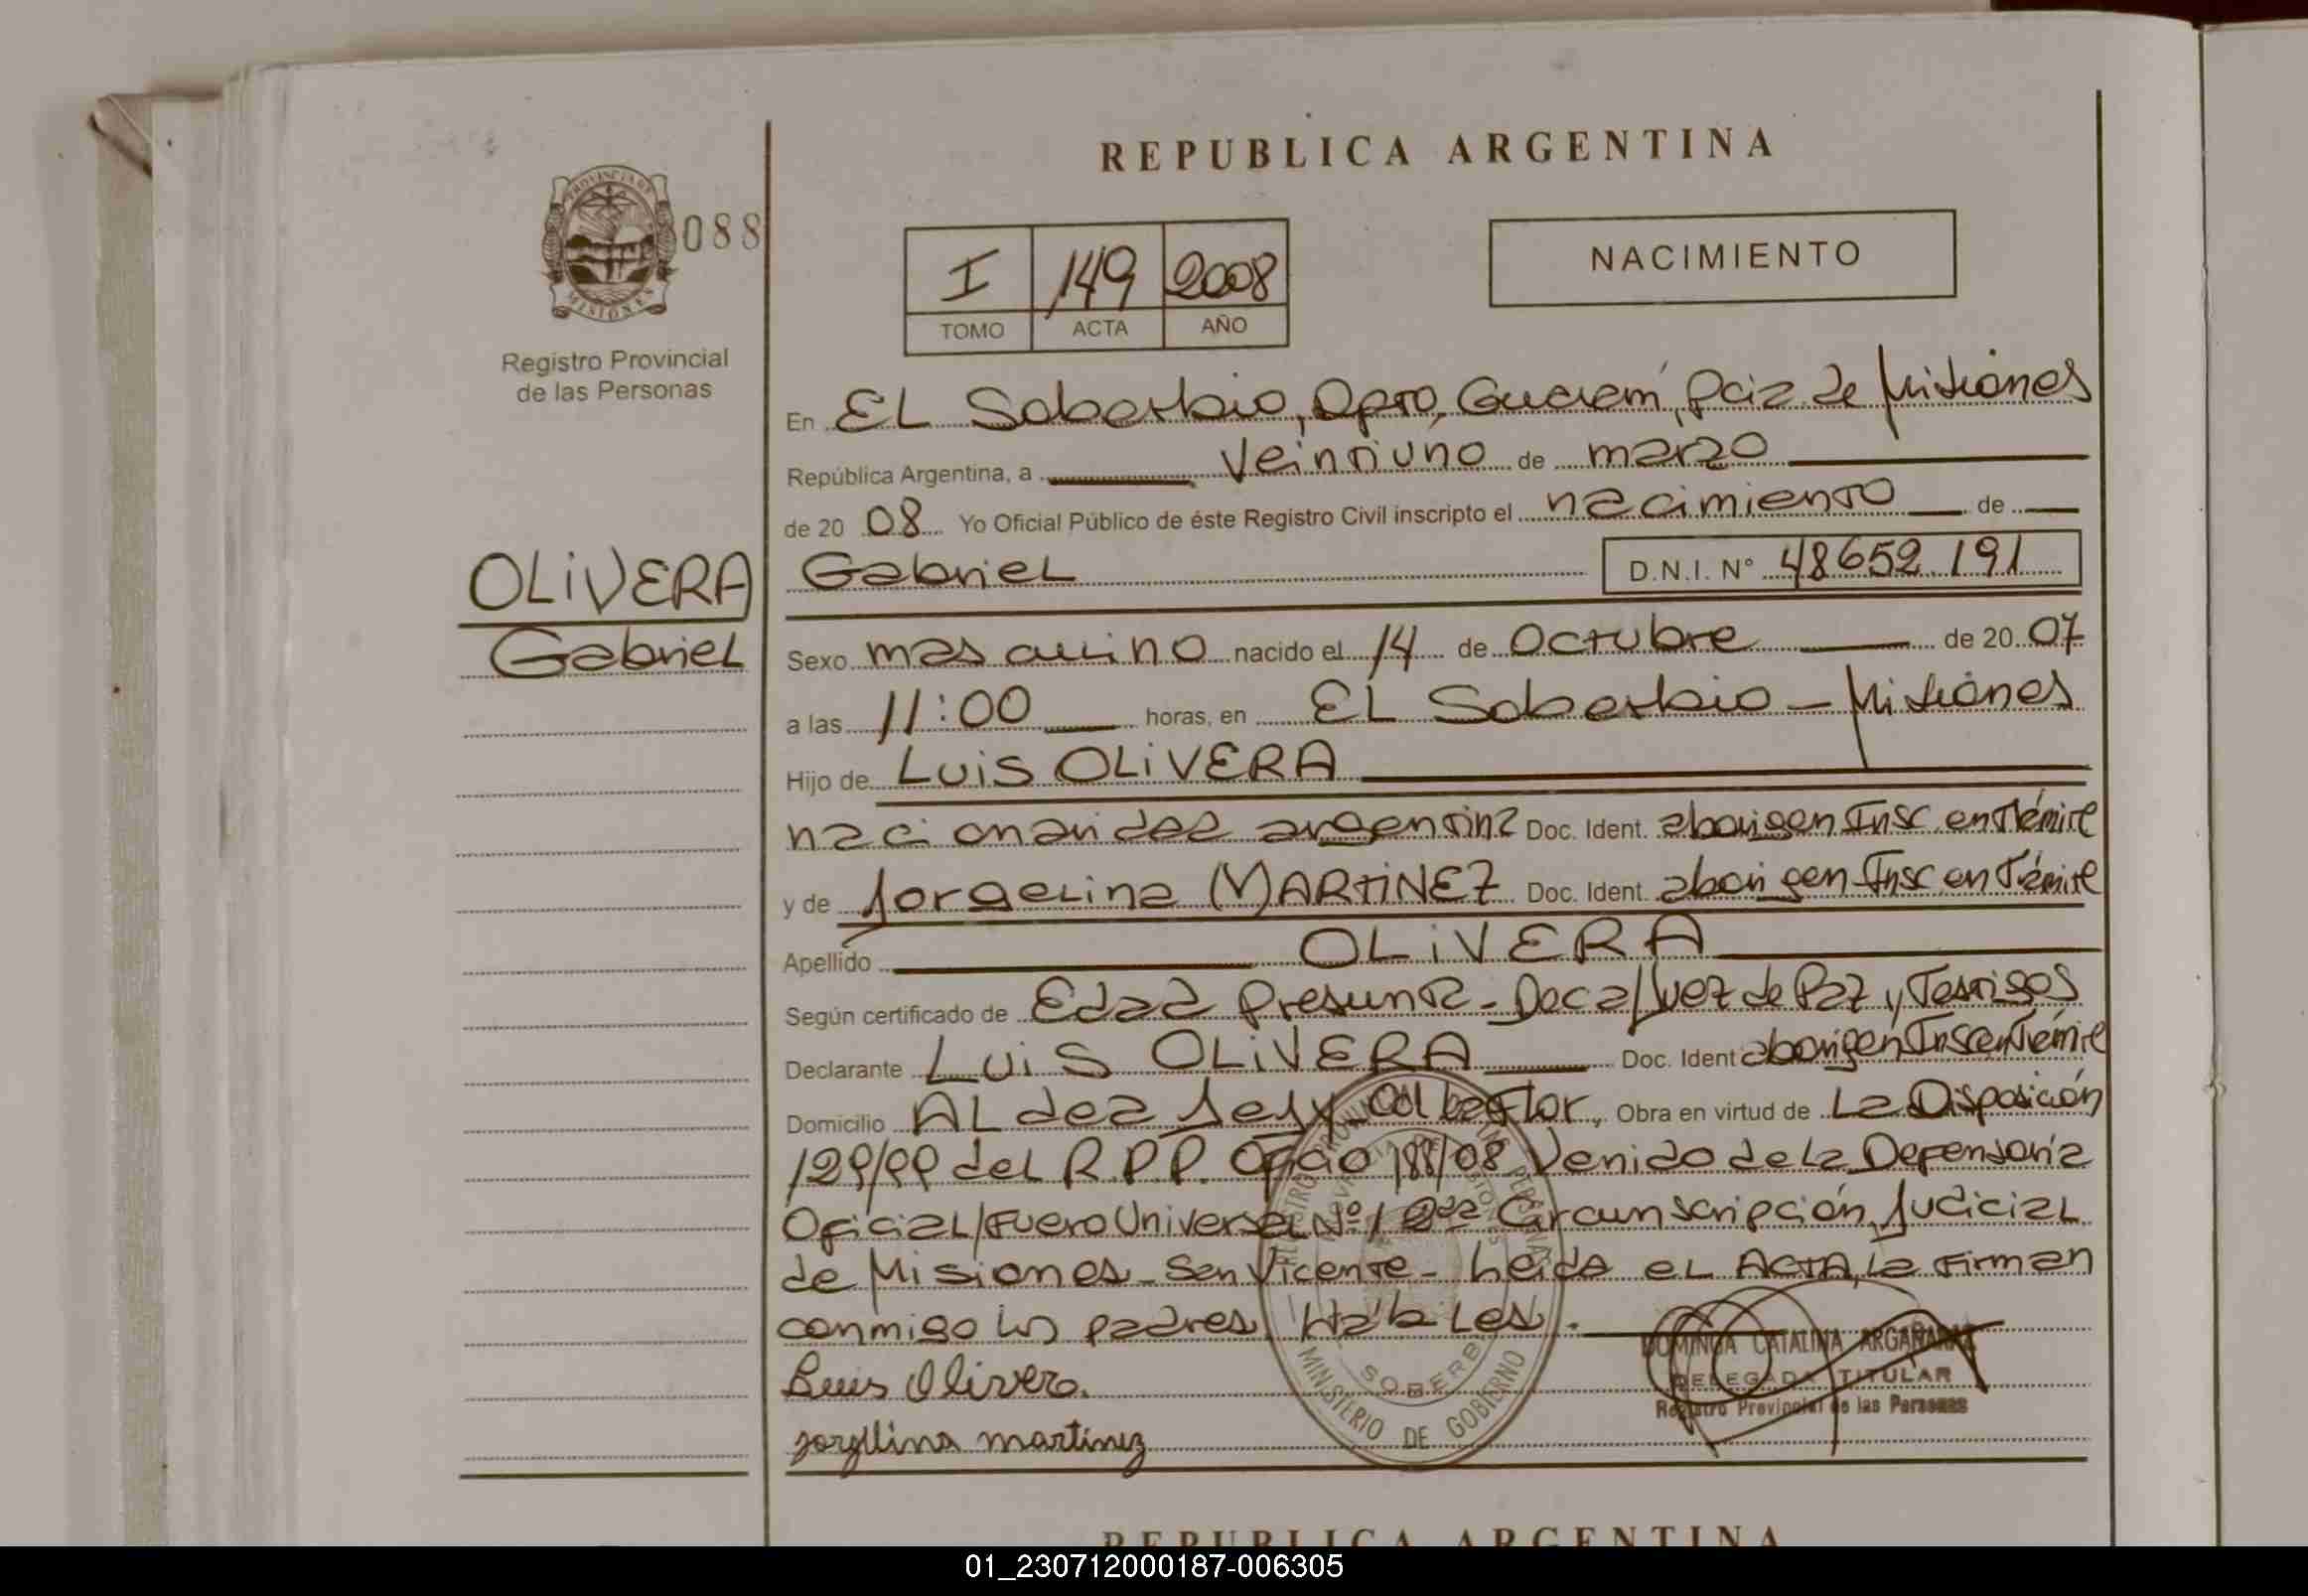 REPUBLICA ARGENTINA
PROVINCIA DE
MISIONES
088
Registro Provincial
de las Personas
I 149 2008
TOMO ACTA AÑO
NACIMIENTO
En EL Soberbio, Dpto, Guaraní, Pcia de Misiones
República Argentina, a veintiuno de marzo
de 20 08 Yo Oficial Público de éste Registro Civil inscripto el nacimiento de
OLIVERA
Gabriel
Gabriel D.N.I. N° 48652.191
Sexo masculino nacido el 14 de Octubre de 20 07
a las 11:00 horas, en EL Soberbio - Misiones
Hijo de Luis OLIVERA
nacionalidad argentina Doc. Ident. aborigen Insc en Trámite
y de Jorgelina MARTINEZ Doc. Ident. aborigen Insc en Trámite
Apellido OLIVERA
Según certificado de Edad Presunta - Doc a/Juez de Paz y Testigos
Declarante Luis OLIVERA Doc. Ident aborigen Insc en Trámite
Domicilio ALdea Jejy Col La Flor, Obra en virtud de La Disposición
129/99 del R.P.P. Oficio 188/08 Venido de la Defensoría
Oficial/Fuero Universal Nº 1 2da Circunscripción Judicial
de Misiones - San Vicente - Leída el ACTA, la Firman
conmigo los padres Hábiles.
Luis Olivera.
jorgelina martinez
DOMINGA CATALINA ARGAÑARAZ
DELEGADA TITULAR
Registro Provincial de las Personas
MINISTERIO DE GOBIERNO
REPUBLICA ARGENTINA
01_230712000187-006305